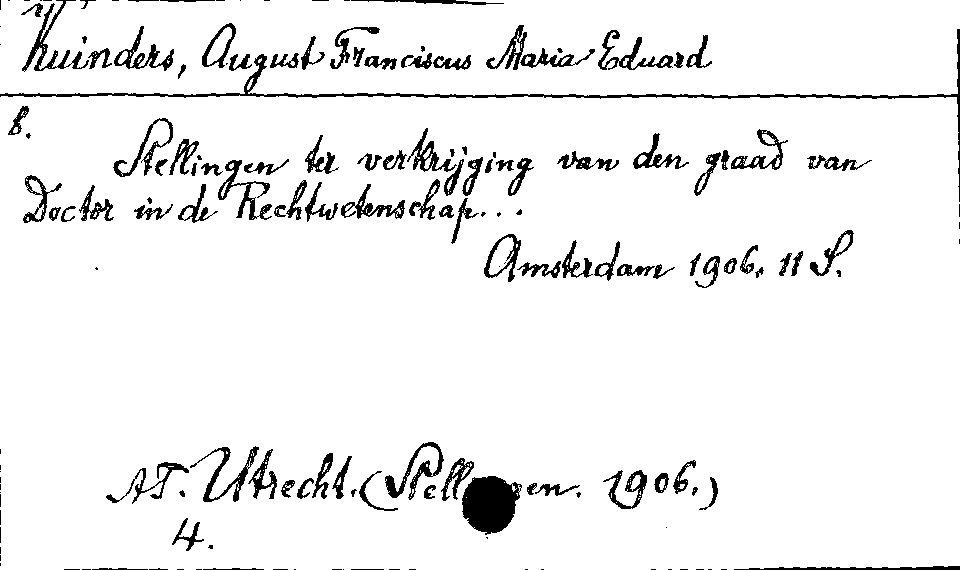 Kuinders, August Franciscus Maria Eduard
8.
Stellingen ter verkrijging van den graad van
Doctor in de Rechtwetenschap...
Amsterdam 1906. 11 S.
AT. Utrecht. (Stellingen. 1906.)
4.